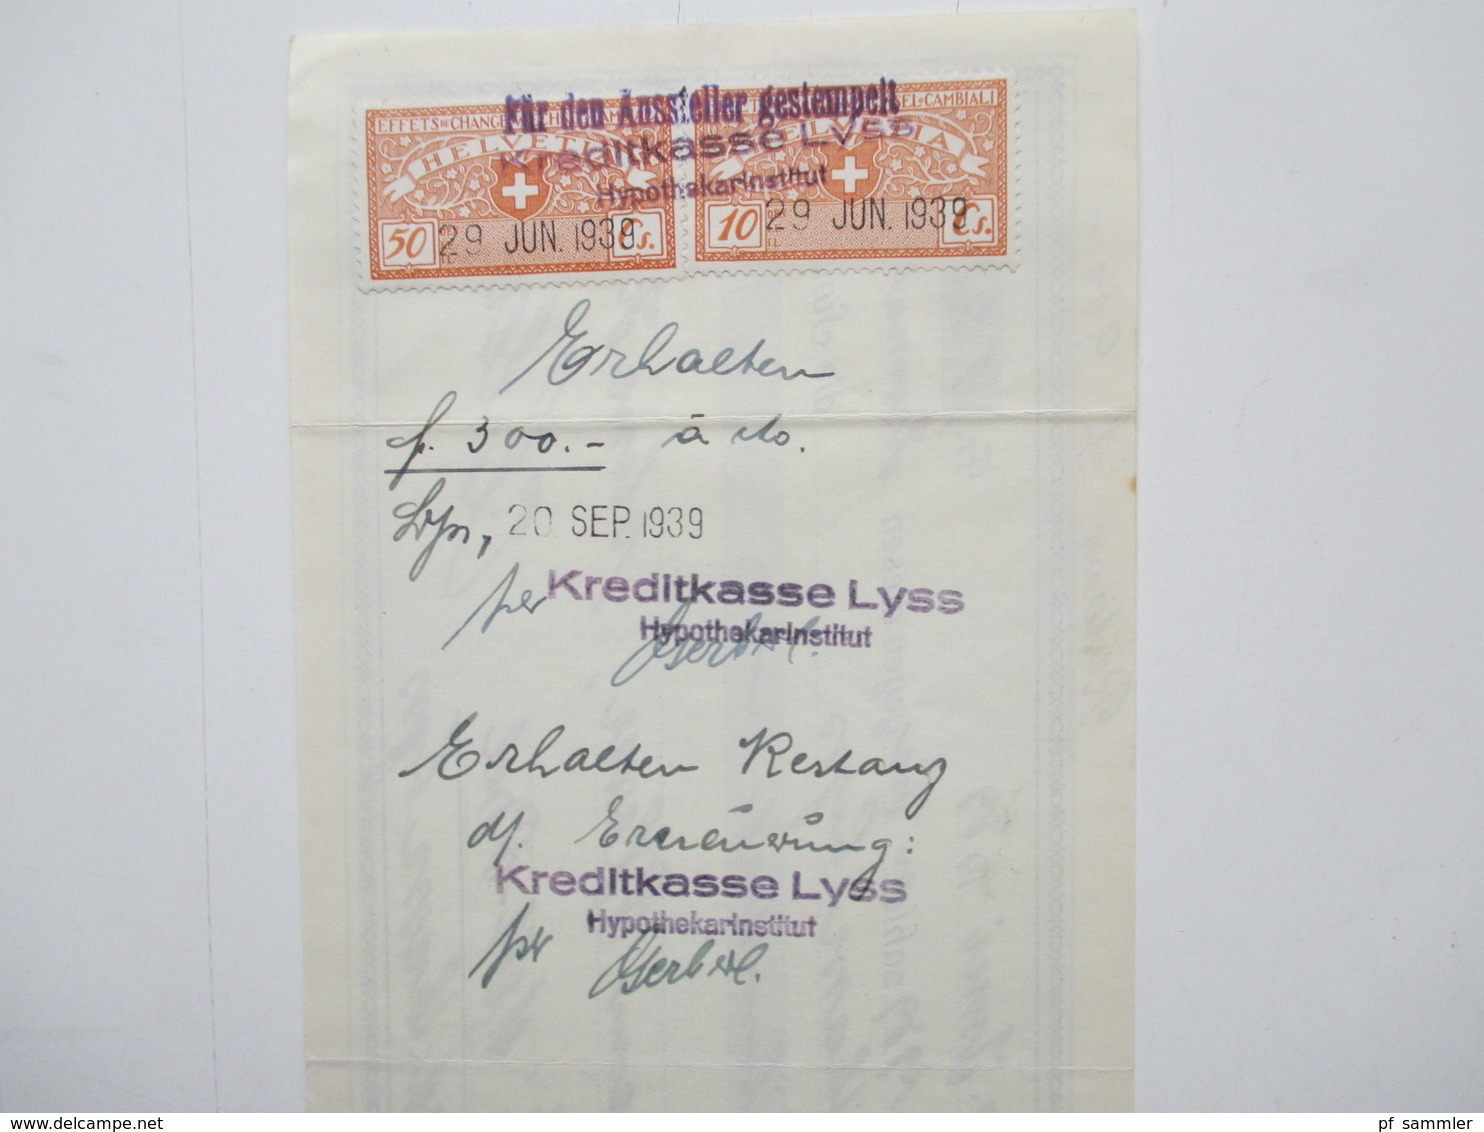 Für den Aussteller gestempelt
Kreditkasse Lyss
Hypothekarinstitut
EFFETS DE CHANGE
HELVETIA
50 Cs.
29 JUN. 1939
CAMBIALI
HELVETIA
10 Cs.
29 JUN. 1939
Erhalten
f. 300.- à cto.
Lyss, 20 SEP. 1939
per Kreditkasse Lyss
Hypothekarinstitut
Erhalten Restanz
d/. Erneuerung:
Kreditkasse Lyss
Hypothekarinstitut
per
pf_sammler